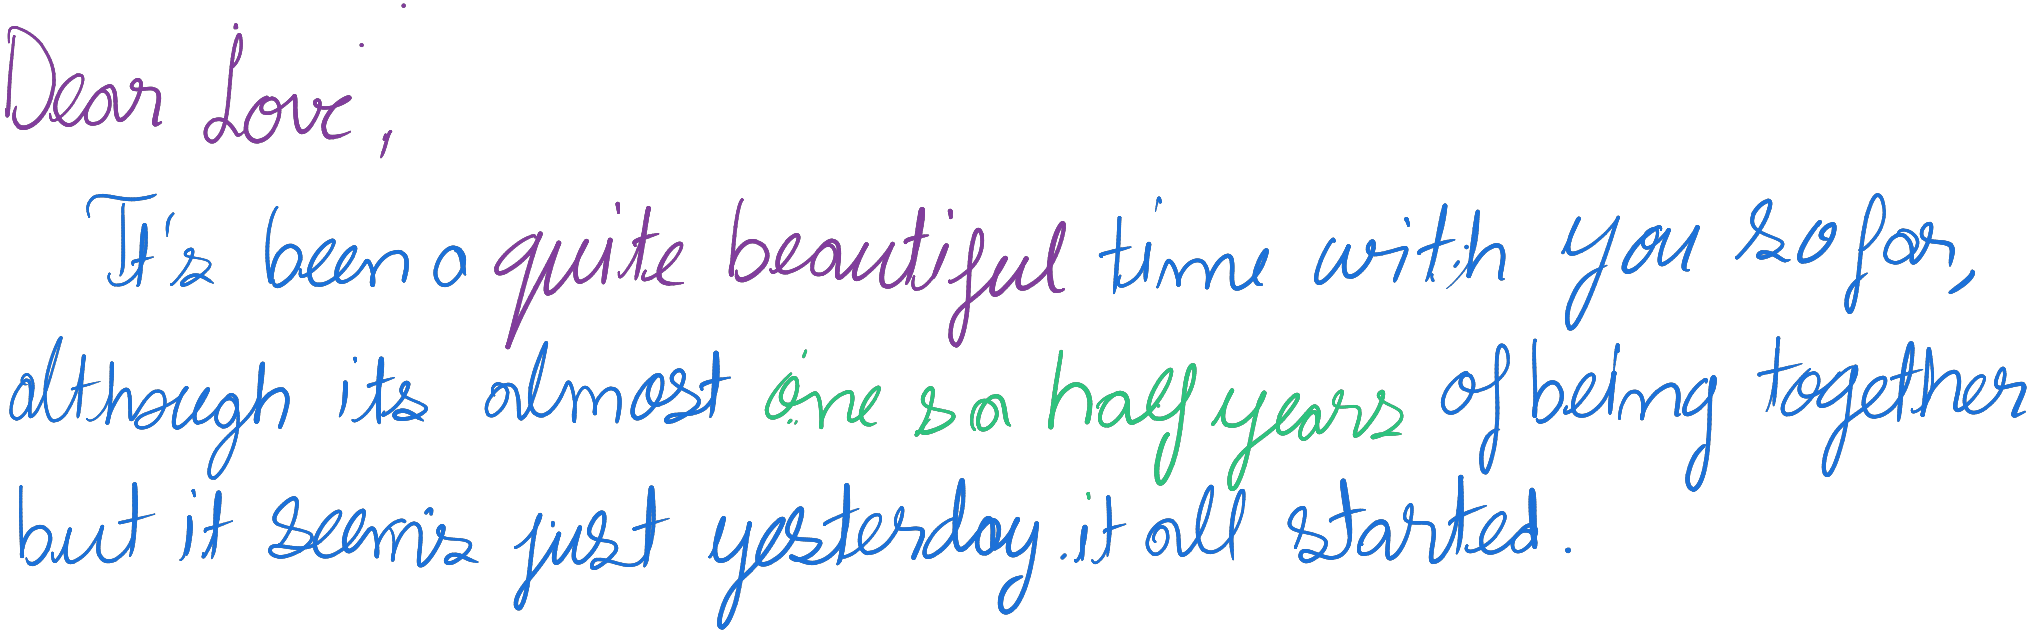 Dear Love,
It's been a quite beautiful time with you so far,
although its almost one s a half years of being together
but it seems just yesterday it all started.